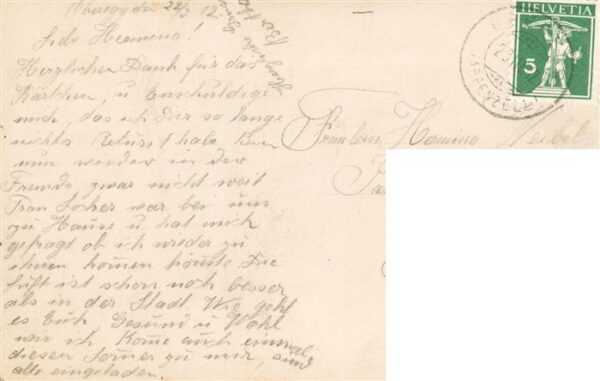 Oberegg den 22/3 12
Liebe Hermina!
Herzlichen Dank für das
Kärtchen, u Enschuldige
mich, das ich Dir so lange
nichts
habe Bin
nun wieder in der
Fremde zwar nicht weit
Frau Locher war bei uns
zu Hause u hat mich
gefragt ob ich wieder zu
ihnen komen könnte Die
luft ist schon noch besser
als in der Stadt Wie geht
es Euch, Gesund u Wohl
ich Kome auch einmal
diesen Somer zu mir, sind
alle eingeladen
Herzliche Grüsse
Bertha
HELVETIA
5
APPENZELL
Fräulein Hermina